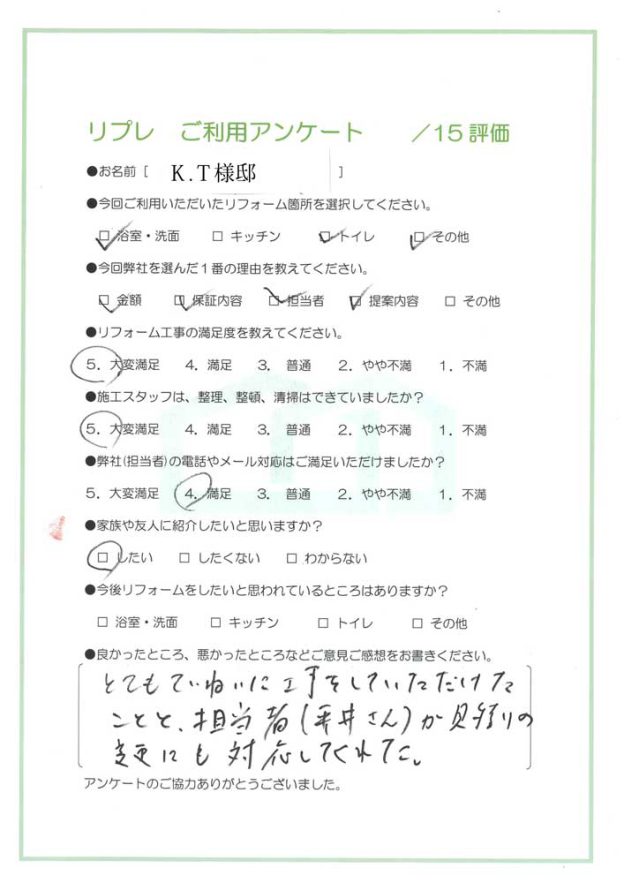 リプレ ご利用アンケート ／15評価
●お名前［ K.T様邸 ］
●今回ご利用いただいたリフォーム箇所を選択してください。
□ 浴室・洗面 □ キッチン □ トイレ □ その他
●今回弊社を選んだ1番の理由を教えてください。
□ 金額 □ 保証内容 □ 担当者 □ 提案内容 □ その他
●リフォーム工事の満足度を教えてください。
5．大変満足 4．満足 3．普通 2．やや不満 1．不満
●施工スタッフは、整理、整頓、清掃はできていましたか？
5．大変満足 4．満足 3．普通 2．やや不満 1．不満
●弊社(担当者)の電話やメール対応はご満足いただけましたか？
5．大変満足 4．満足 3．普通 2．やや不満 1．不満
●家族や友人に紹介したいと思いますか？
□ したい □ したくない □ わからない
●今後リフォームをしたいと思われているところはありますか？
□ 浴室・洗面 □ キッチン □ トイレ □ その他
●良かったところ、悪かったところなどご意見ご感想をお書きください。
とてもていねいに工事をしていただけた
ことと、担当者(平井さん)が見積りの
変更にも対応してくれた。
アンケートのご協力ありがとうございました。